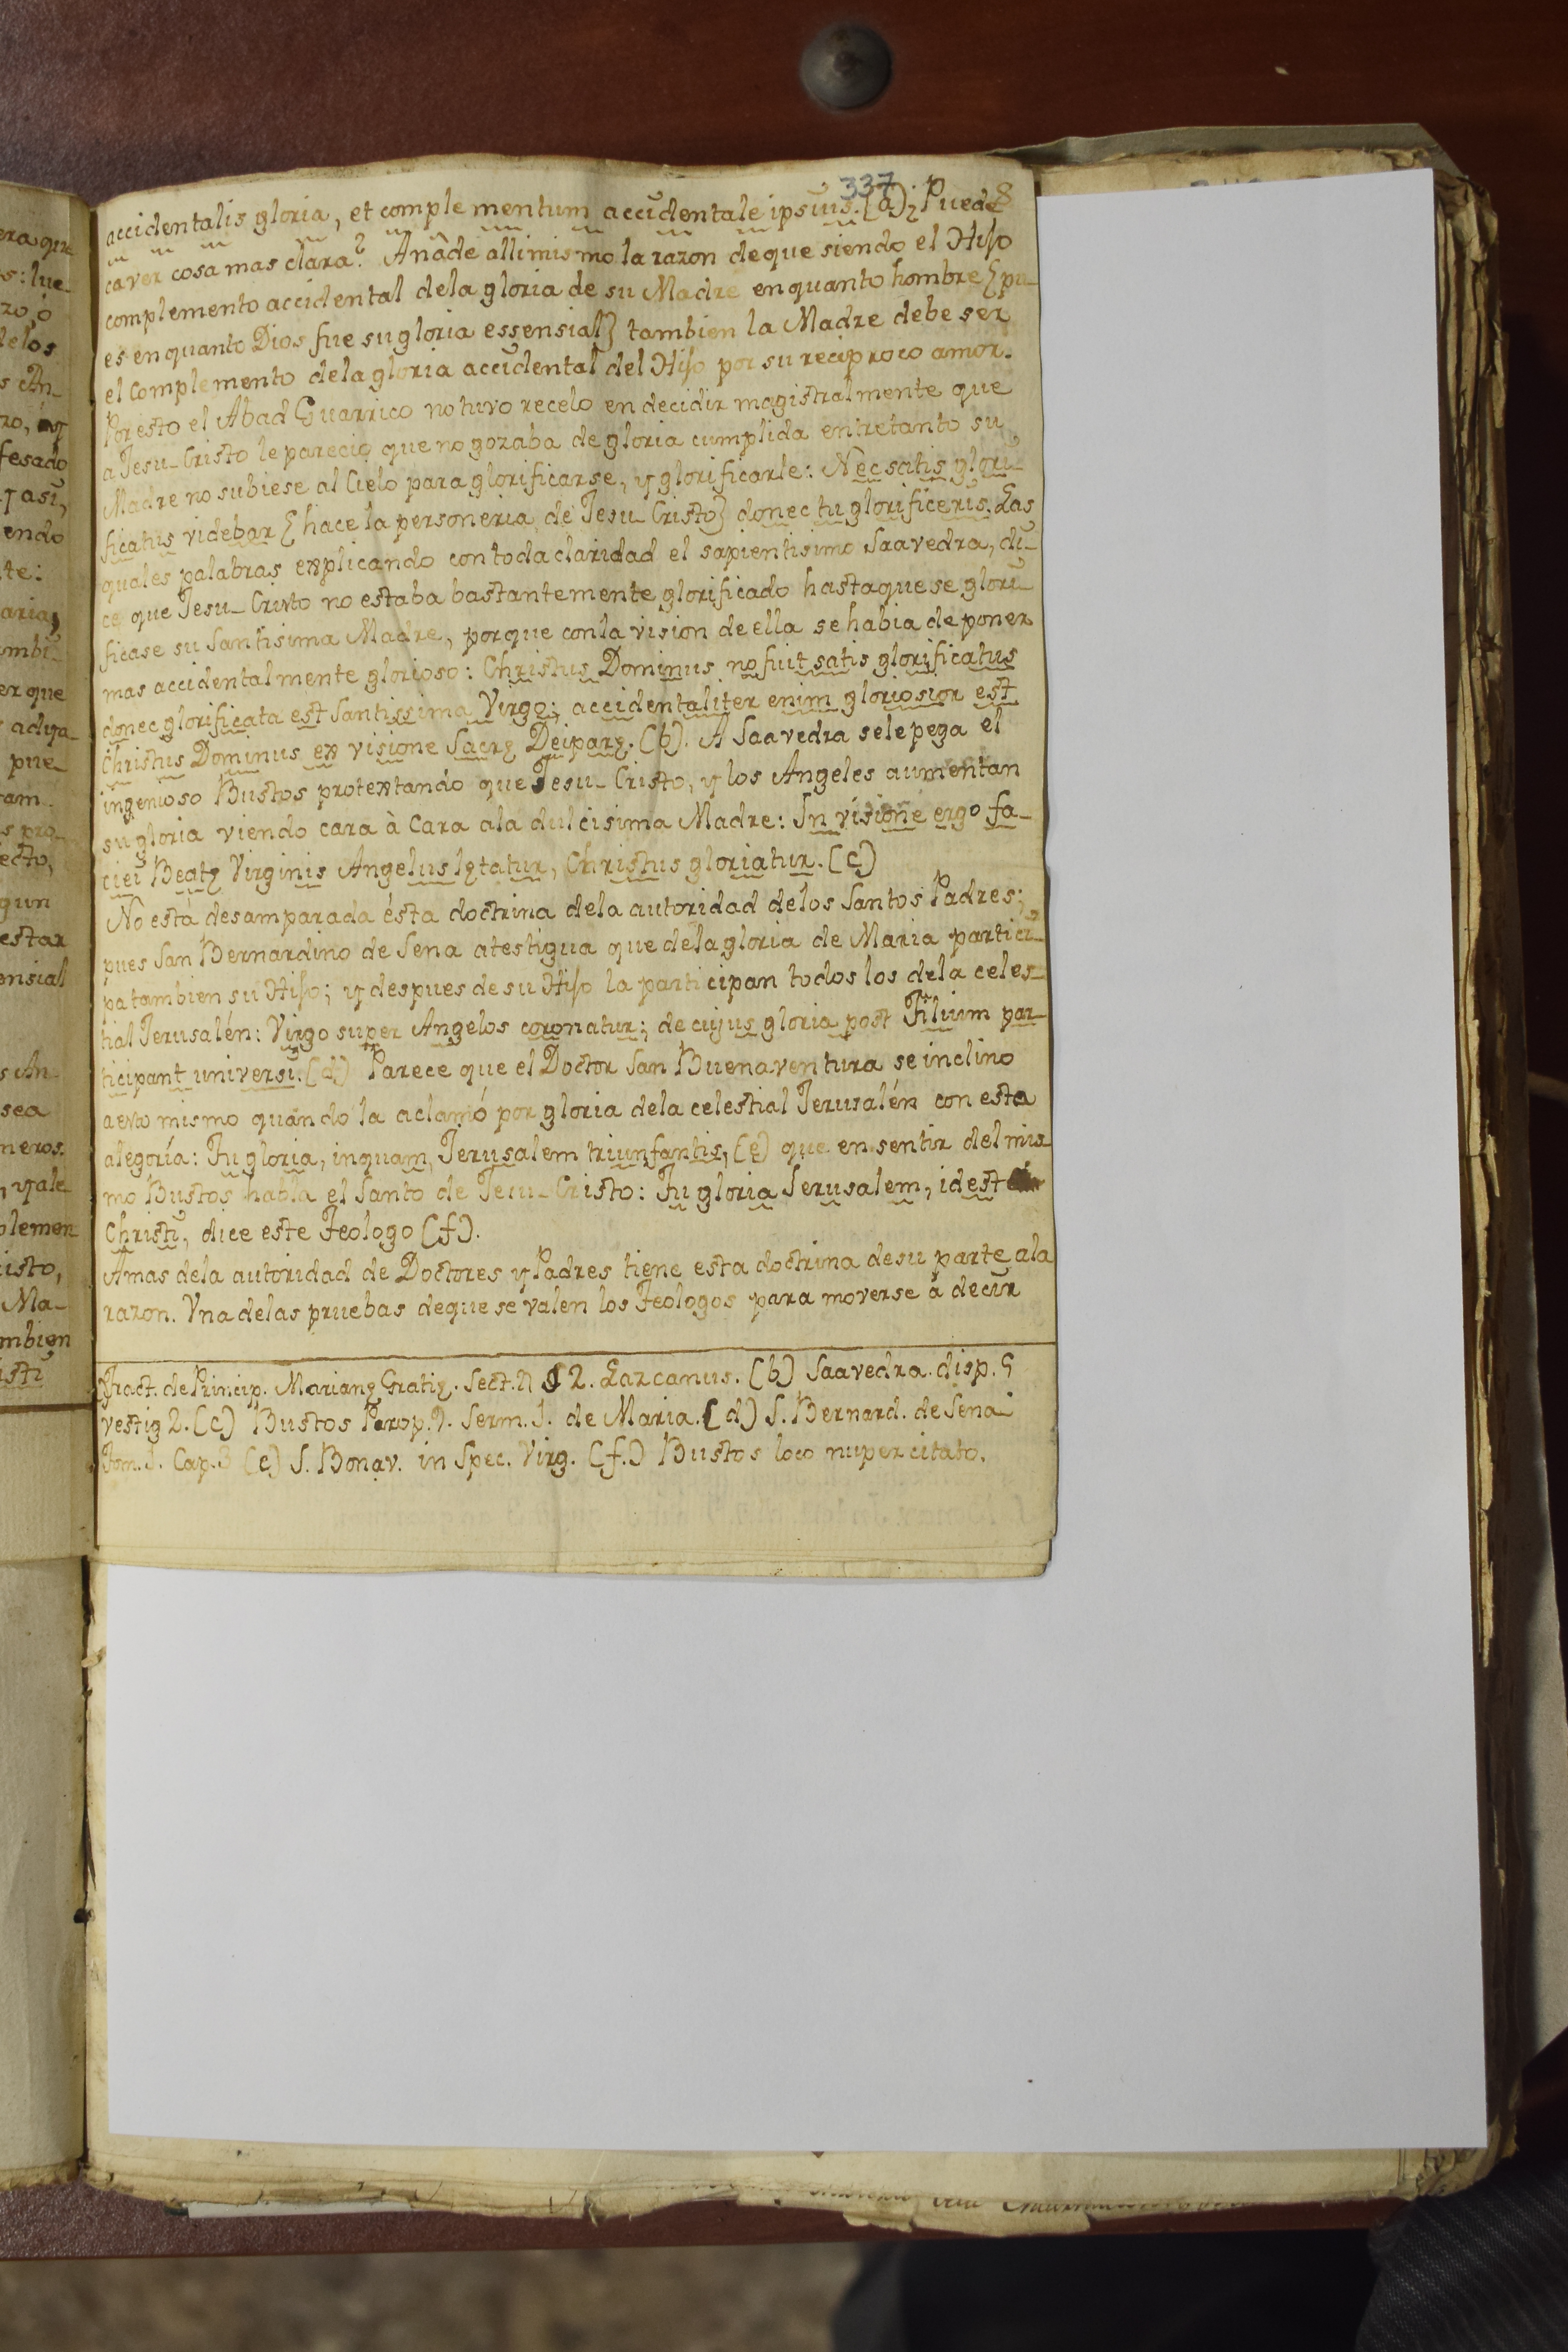 337
8
accidentalis gloria, et complementum accidentale ipsius. (a) ¿Puede
caver cosa mas clara? Añade alli mismo la razon de que siendo el Hijo
complemento accidental dela gloria de su Madre en quanto hombre {pu-
es en quanto Dios fue su gloria essensial} tambien la Madre debe ser
el complemento dela gloria accidental del Hijo por su reciproco amor.
Por esto el Abad Guarrico no tuvo recelo en decidir magistralmente que
a Jesu-Cristo le parecio que no gozaba de gloria cumplida entretanto su
Madre no subiese al Cielo para glorificarse, y glorificarle: Nec satis glori-
ficatus videbar {hace la personeria de Jesu Cristo} donec tu glorificeris. Las
quales palabras explicando con toda claridad el sapientisimo Saavedra, di-
ce que Jesu-Cristo no estaba bastantemente glorificado hasta que se glori-
ficase su Santisima Madre, porque con la vision de ella se habia de poner
mas accidentalmente glorioso: Christus Dominus no fuit satis glorificatus
donec glorificata est Santissima Virgo; accidentaliter enim gloriosior est
Christus Dominus ex visione Sacrę Deiparę. (b). A Saavedra se le pega el
ingenioso Bustos protextando que Jesu-Cristo, y los Angeles aumentan
su gloria viendo cara à Cara a la dulcisima Madre: In visione ergo fa-
ciei Beatę Virginis Angelus lętatur, Christus gloriatur. (c)
No está desamparada ésta doctrina dela autoridad delos Santos Padres;
pues San Bernardino de Sena atestigua que dela gloria de Maria partici-
pa tambien su Hijo; y despues de su Hijo la participan todos los dela celes-
tial Jerusalén: Virgo super Angelos coronatur; de cujus gloria post Filium par-
ticipant universi. (d) Parece que el Doctor San Buenaventura se inclino
a esto mismo quando la aclamó por gloria dela celestial Jerusalén con esta
alegoría: Tu gloria, inquam, Jerusalem triunfantis, (e) que en sentir del mis-
mo Bustos habla el Santo de Jesu-Cristo: Tu gloria Jerusalem, idest
Christi, dice este Teologo (f).
Amas dela autoridad de Doctores y Padres tiene esta doctrina de su parte ala
razon. Vna delas pruebas de que se valen los Teologos para moverse á decir
Tract. de Princip. Marianę Gratię. Sect. 2 § 2. Lazcanus. (b) Saavedra. disp. 5
vestig 2. (c) Bustos Parop. 9. Serm. 1. de Maria. (d) S. Bernard. de Sena
Tom. 1. Cap. 3 (e) S. Bonav. in Spec. Virg. (f.) Bustos loco nuper citato.